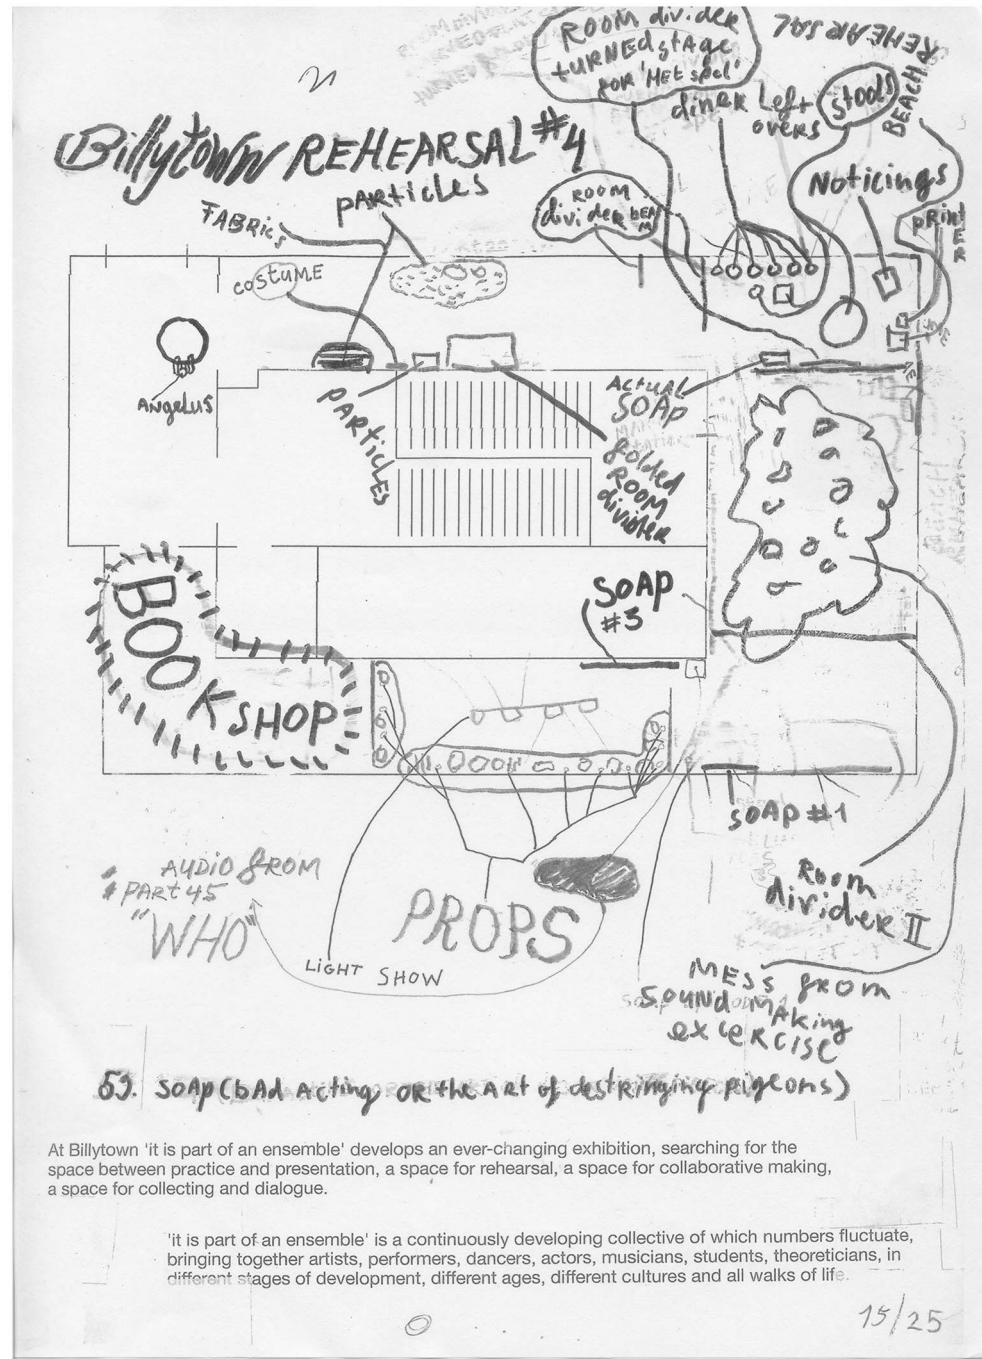 21
ROOM divider
tURNEd stAge
foR 'Het spel'
REHEARSAL
BEACH
stools
dinER left
overs
Billytown REHEARSAL #4
PARticles
FABRics
costUME
ROOM
divider
Noticings
pRint
ANgeLUS
PARticLES
ActUAL
SOAp
folded
ROOM
divider
BOOKSHOP
SOAp
#3
SOAp #1
AUDIO fROM
PART 45
"WHO"
PROPS
LiGHT SHOW
Room
divider II
MESS fROM
SOUND MAking
excERCISE
59. SOAp (bAd Acting OR the ARt of destRinging pigeons)
At Billytown 'it is part of an ensemble' develops an ever-changing exhibition, searching for the
space between practice and presentation, a space for rehearsal, a space for collaborative making,
a space for collecting and dialogue.
'it is part of an ensemble' is a continuously developing collective of which numbers fluctuate,
bringing together artists, performers, dancers, actors, musicians, students, theoreticians, in
different stages of development, different ages, different cultures and all walks of life.
15/25